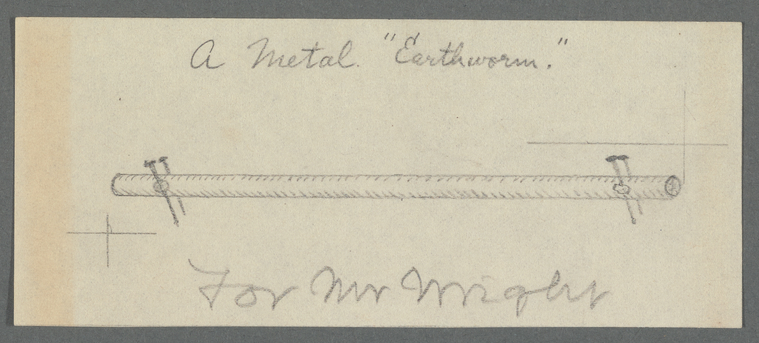 A Metal "Earthworm."
For Mr Wright